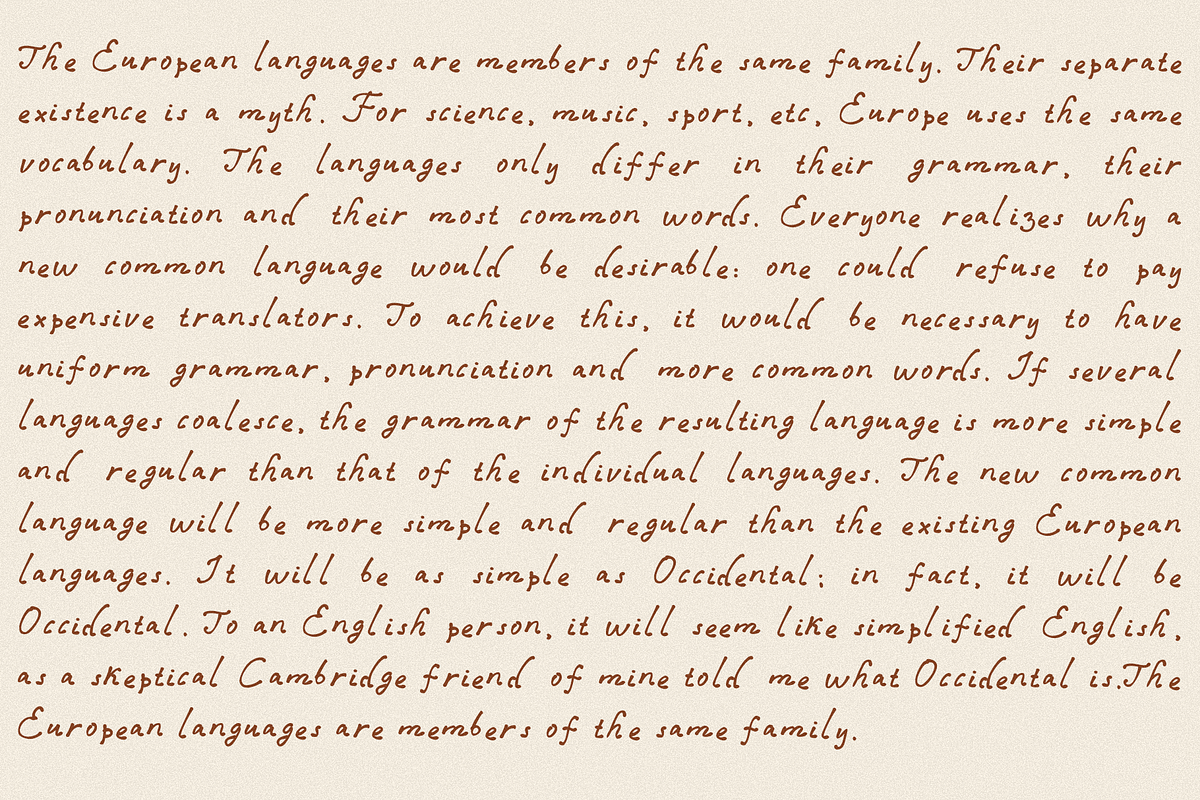 The European languages are members of the same family. Their separate
existence is a myth. For science, music, sport, etc, Europe uses the same
vocabulary. The languages only differ in their grammar, their
pronunciation and their most common words. Everyone realizes why a
new common language would be desirable: one could refuse to pay
expensive translators. To achieve this, it would be necessary to have
uniform grammar, pronunciation and more common words. If several
languages coalesce, the grammar of the resulting language is more simple
and regular than that of the individual languages. The new common
language will be more simple and regular than the existing European
languages. It will be as simple as Occidental; in fact, it will be
Occidental. To an English person, it will seem like simplified English,
as a skeptical Cambridge friend of mine told me what Occidental is.The
European languages are members of the same family.